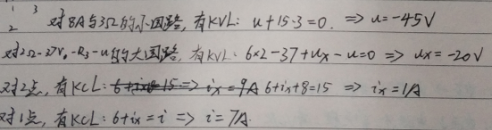 1 3
2 对8A与3Ω的小回路,有KVL: u+15·3=0. ⇒ u=-45V
对2Ω-37V-R₃-u的大回路,有KVL: 6×2-37+ux-u=0 ⇒ ux=-20V
对2点,有KCL: 6+ix+8=15 ⇒ ix=1A
对1点,有KCL: 6+ix=i ⇒ i=7A.